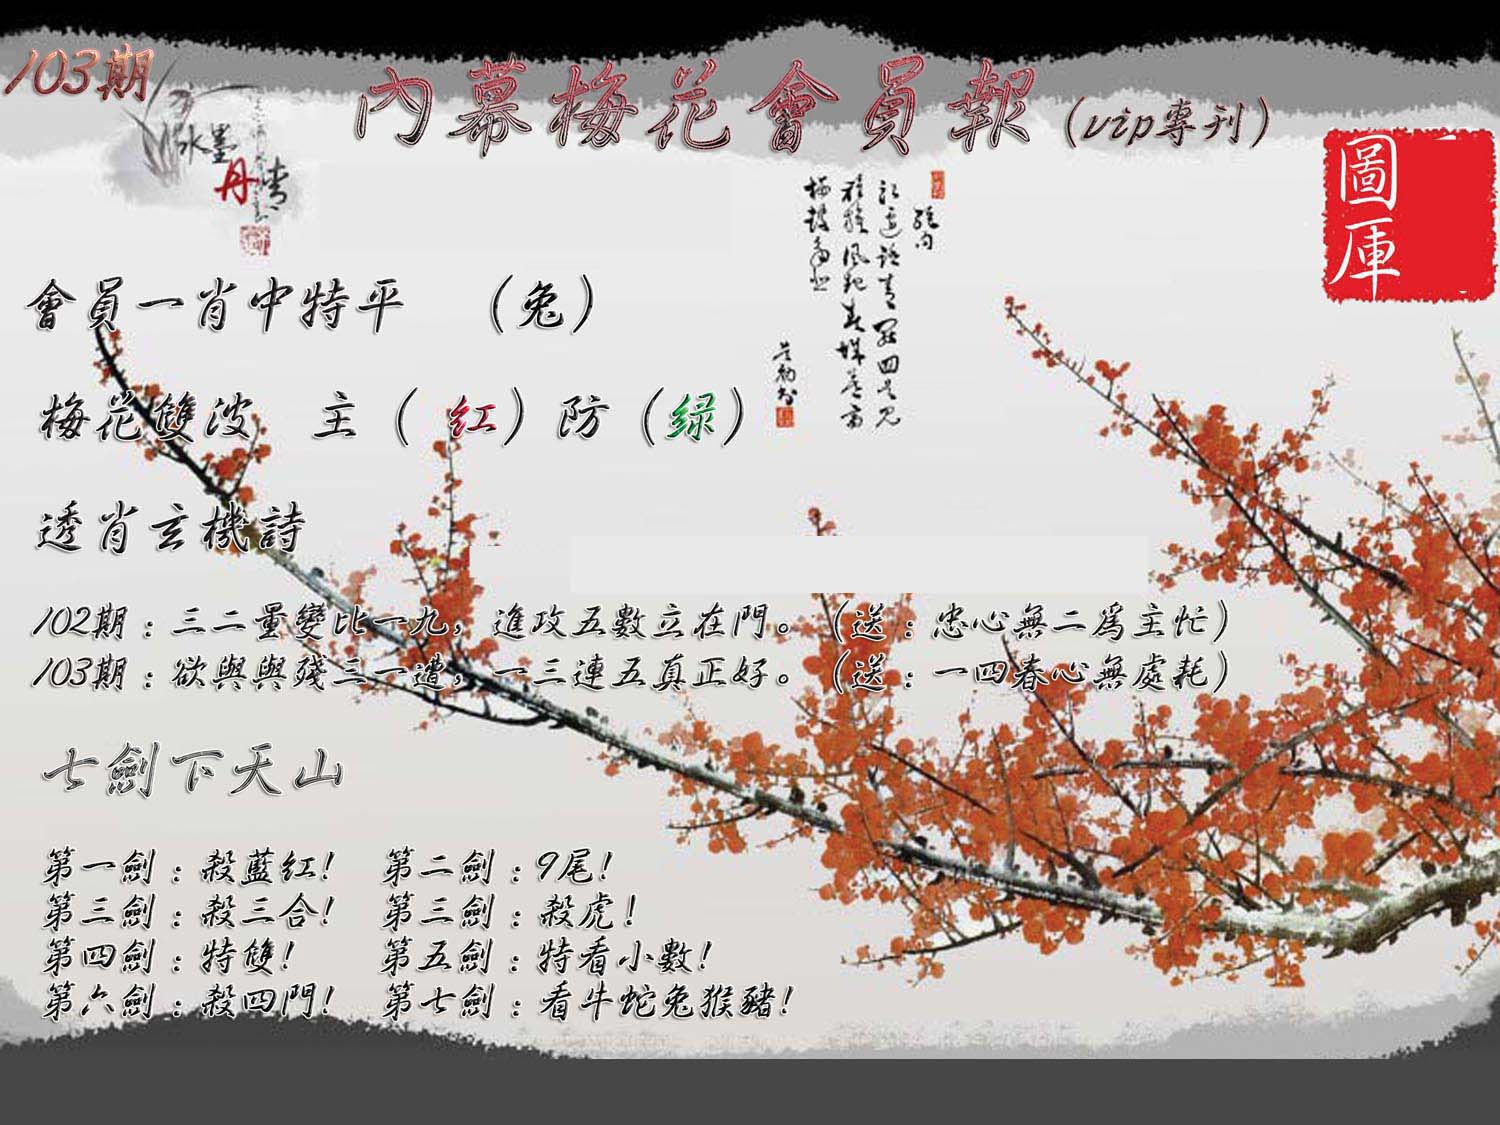 103期
內幕梅花會員報（vip專刊）
水墨
丹青
圖庫
會員一肖中特平　（兔）
梅花雙波　主（紅）防（绿）
透肖玄機詩
102期：三二量變比一九，進攻五數立在門。（送：忠心無二爲主忙）
103期：欲與與殘三一遭，一三連五真正好。（送：一四春心無處耗）
七劍下天山
第一劍：殺藍紅！　第二劍：9尾！
第三劍：殺三合！　第三劍：殺虎！
第四劍：特雙！　第五劍：特看小數！
第六劍：殺四門！　第七劍：看牛蛇兔猴豬！